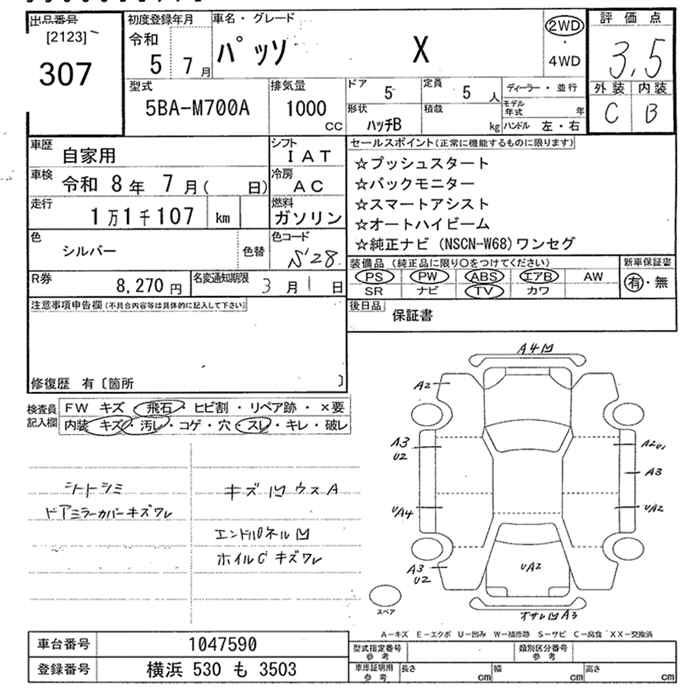 出品番号
[2123]
307
初度登録年月
令和 5 7 月
車名・グレード
パッソ X
2WD
・
4WD
評価点
3.5
外装 内装
C B
型式
5BA-M700A
排気量
1000 cc
ドア
5
定員
5 人
形状
ハッチB
積載
kg
ディーラー・並行
モデル年式 年
ハンドル 左・右
車歴
自家用
シフト
IAT
車検 令和 8 年 7 月( 日)
冷房
AC
走行
1万1千107 km
燃料
ガソリン
色
シルバー
色替
色コード
S28
R券
8,270 円
名変通知期限
3 月 1 日
セールスポイント(正常に機能するものに限ります)
☆プッシュスタート
☆バックモニター
☆スマートアシスト
☆オートハイビーム
☆純正ナビ(NSCN-W68)ワンセグ
装備品(純正品に限り○をつけてください)
PS PW ABS エアB AW
SR ナビ TV カワ
新車保証書
有・無
後日品
保証書
注意事項申告欄(不具合内容等は具体的に記入して下さい)
修復歴 有〔箇所 〕
検査員
記入欄
FW キズ・飛石・ヒビ割・リペア跡・×要
内装・キズ・汚レ・コゲ・穴・スレ・キレ・破レ
シトシミ
ドアミラーカバーキズワレ
キズ凹ウスA
エンドパネル凹
ホイルCキズワレ
A4凹
A2
A3
U2
A2U1
A3
UA4
UA2
A3
U2
UA2
A3
スペア
A-キズ E-エクボ U-凹み W-補修跡 S-サビ C-腐食 XX-交換済
車台番号 1047590
登録番号 横浜 530 も 3503
型式指定番号
参考
類別区分番号
参考
車庫証明用
参考
長さ cm
幅 cm
高さ cm